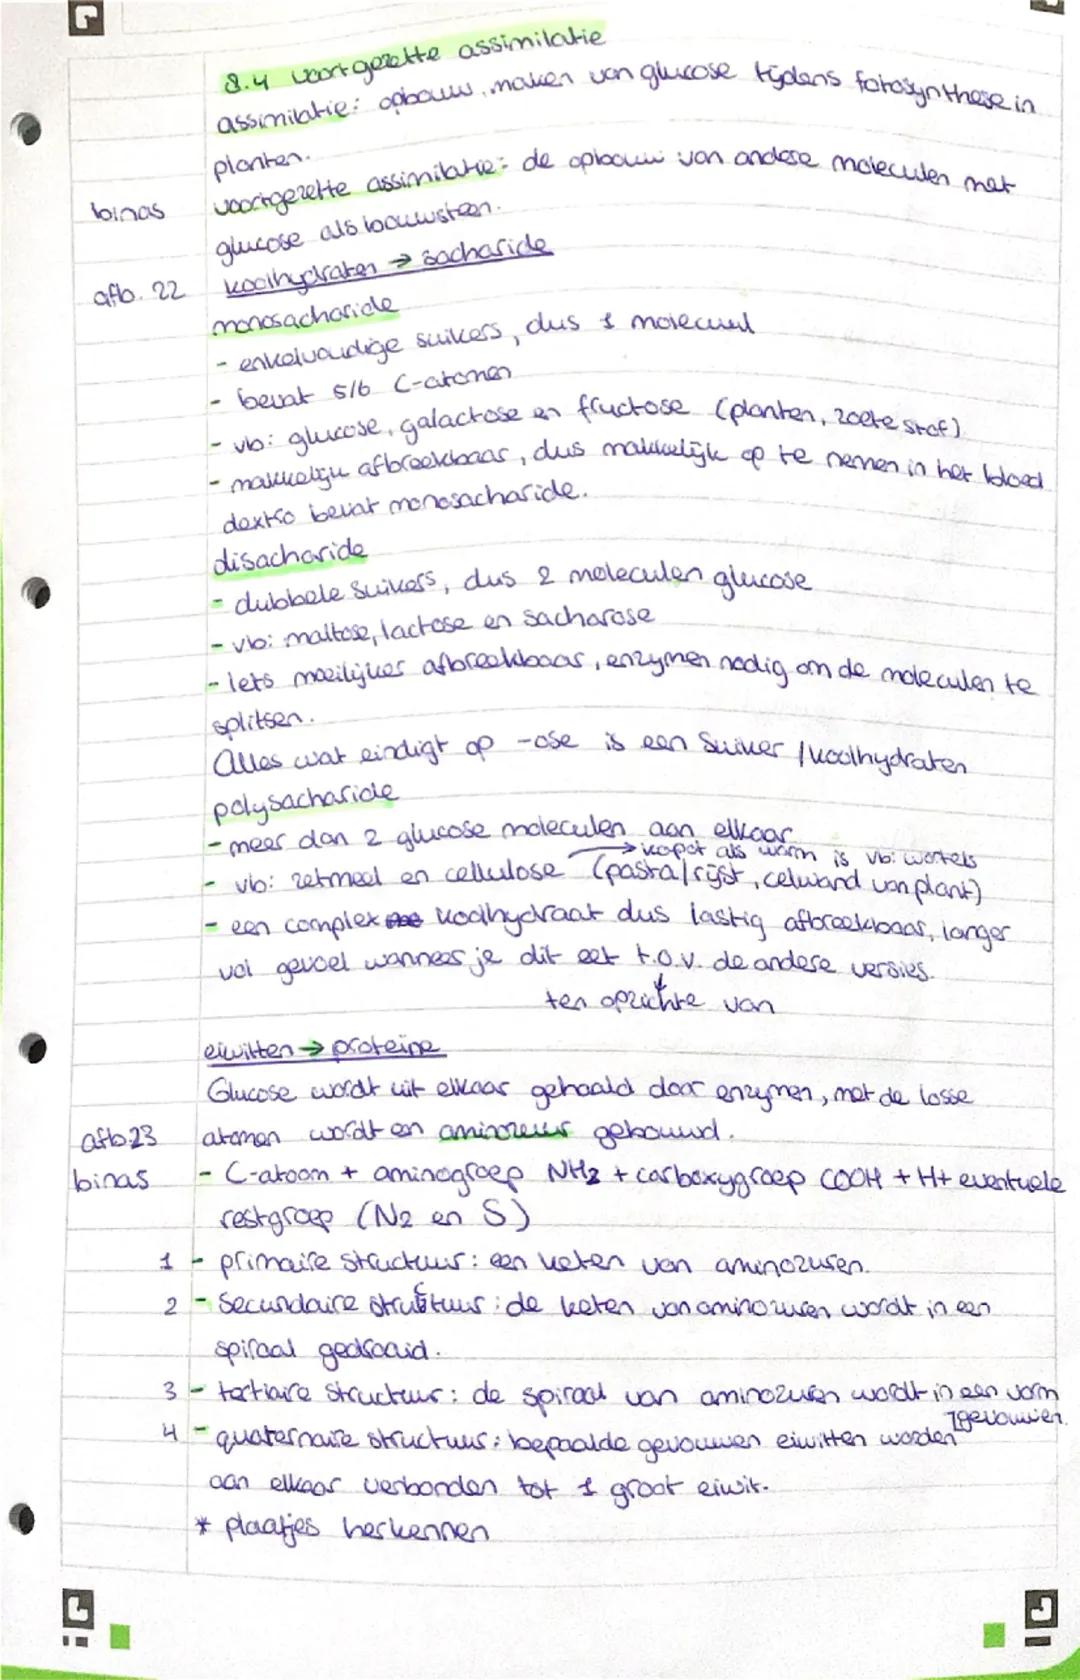 8.4 voortgezette assimilatie
assimilatie: opbouw, maken van glucose tijdens fotosynthese in
planten.
binas voortgezette assimilatie: de opbouw van andere moleculen met
glucose als bouwsteen.
afb. 22 koolhydraten → sacharide
monosacharide
- enkelvoudige suikers, dus 1 molecuul
- bevat 5/6 C-atomen
- vb: glucose, galactose en fructose (planten, zoete stof)
- makkelijk afbreekbaar, dus makkelijk op te nemen in het bloed
dextro bevat monosacharide.
disacharide
- dubbele suikers, dus 2 moleculen glucose
- vb: maltose, lactose en sacharose
- iets moeilijker afbreekbaar, enzymen nodig om de moleculen te
splitsen.
Alles wat eindigt op -ose is een suiker / koolhydraten
polysacharide
- meer dan 2 glucose moleculen aan elkaar
→ kapot als warm is vb: wortels
- vb: zetmeel en cellulose (pasta/rijst, celwand van plant)
- een complex koolhydraat dus lastig afbreekbaar, langer
vol gevoel wanneer je dit eet t.o.v. de andere versies.
ten opzichte van
eiwitten → proteine
Glucose wordt uit elkaar gehaald door enzymen, met de losse
afb 23 atomen wordt en aminozuur gebouwd.
binas - C-atoom + aminogroep NH2 + carboxygroep COOH + H + eventuele
restgroep (N2 en S)
1 - primaire structuur: een keten van aminozuren.
2 - Secundaire structuur: de keten van aminozuren wordt in een
spiraal gedraaid.
3 - tertiaire structuur: de spiraal van aminozuren wordt in een vorm
gevouwen.
4 - quaternaire structuur: bepaalde gevouwen eiwitten worden
aan elkaar verbonden tot 1 groot eiwit.
* plaatjes herkennen